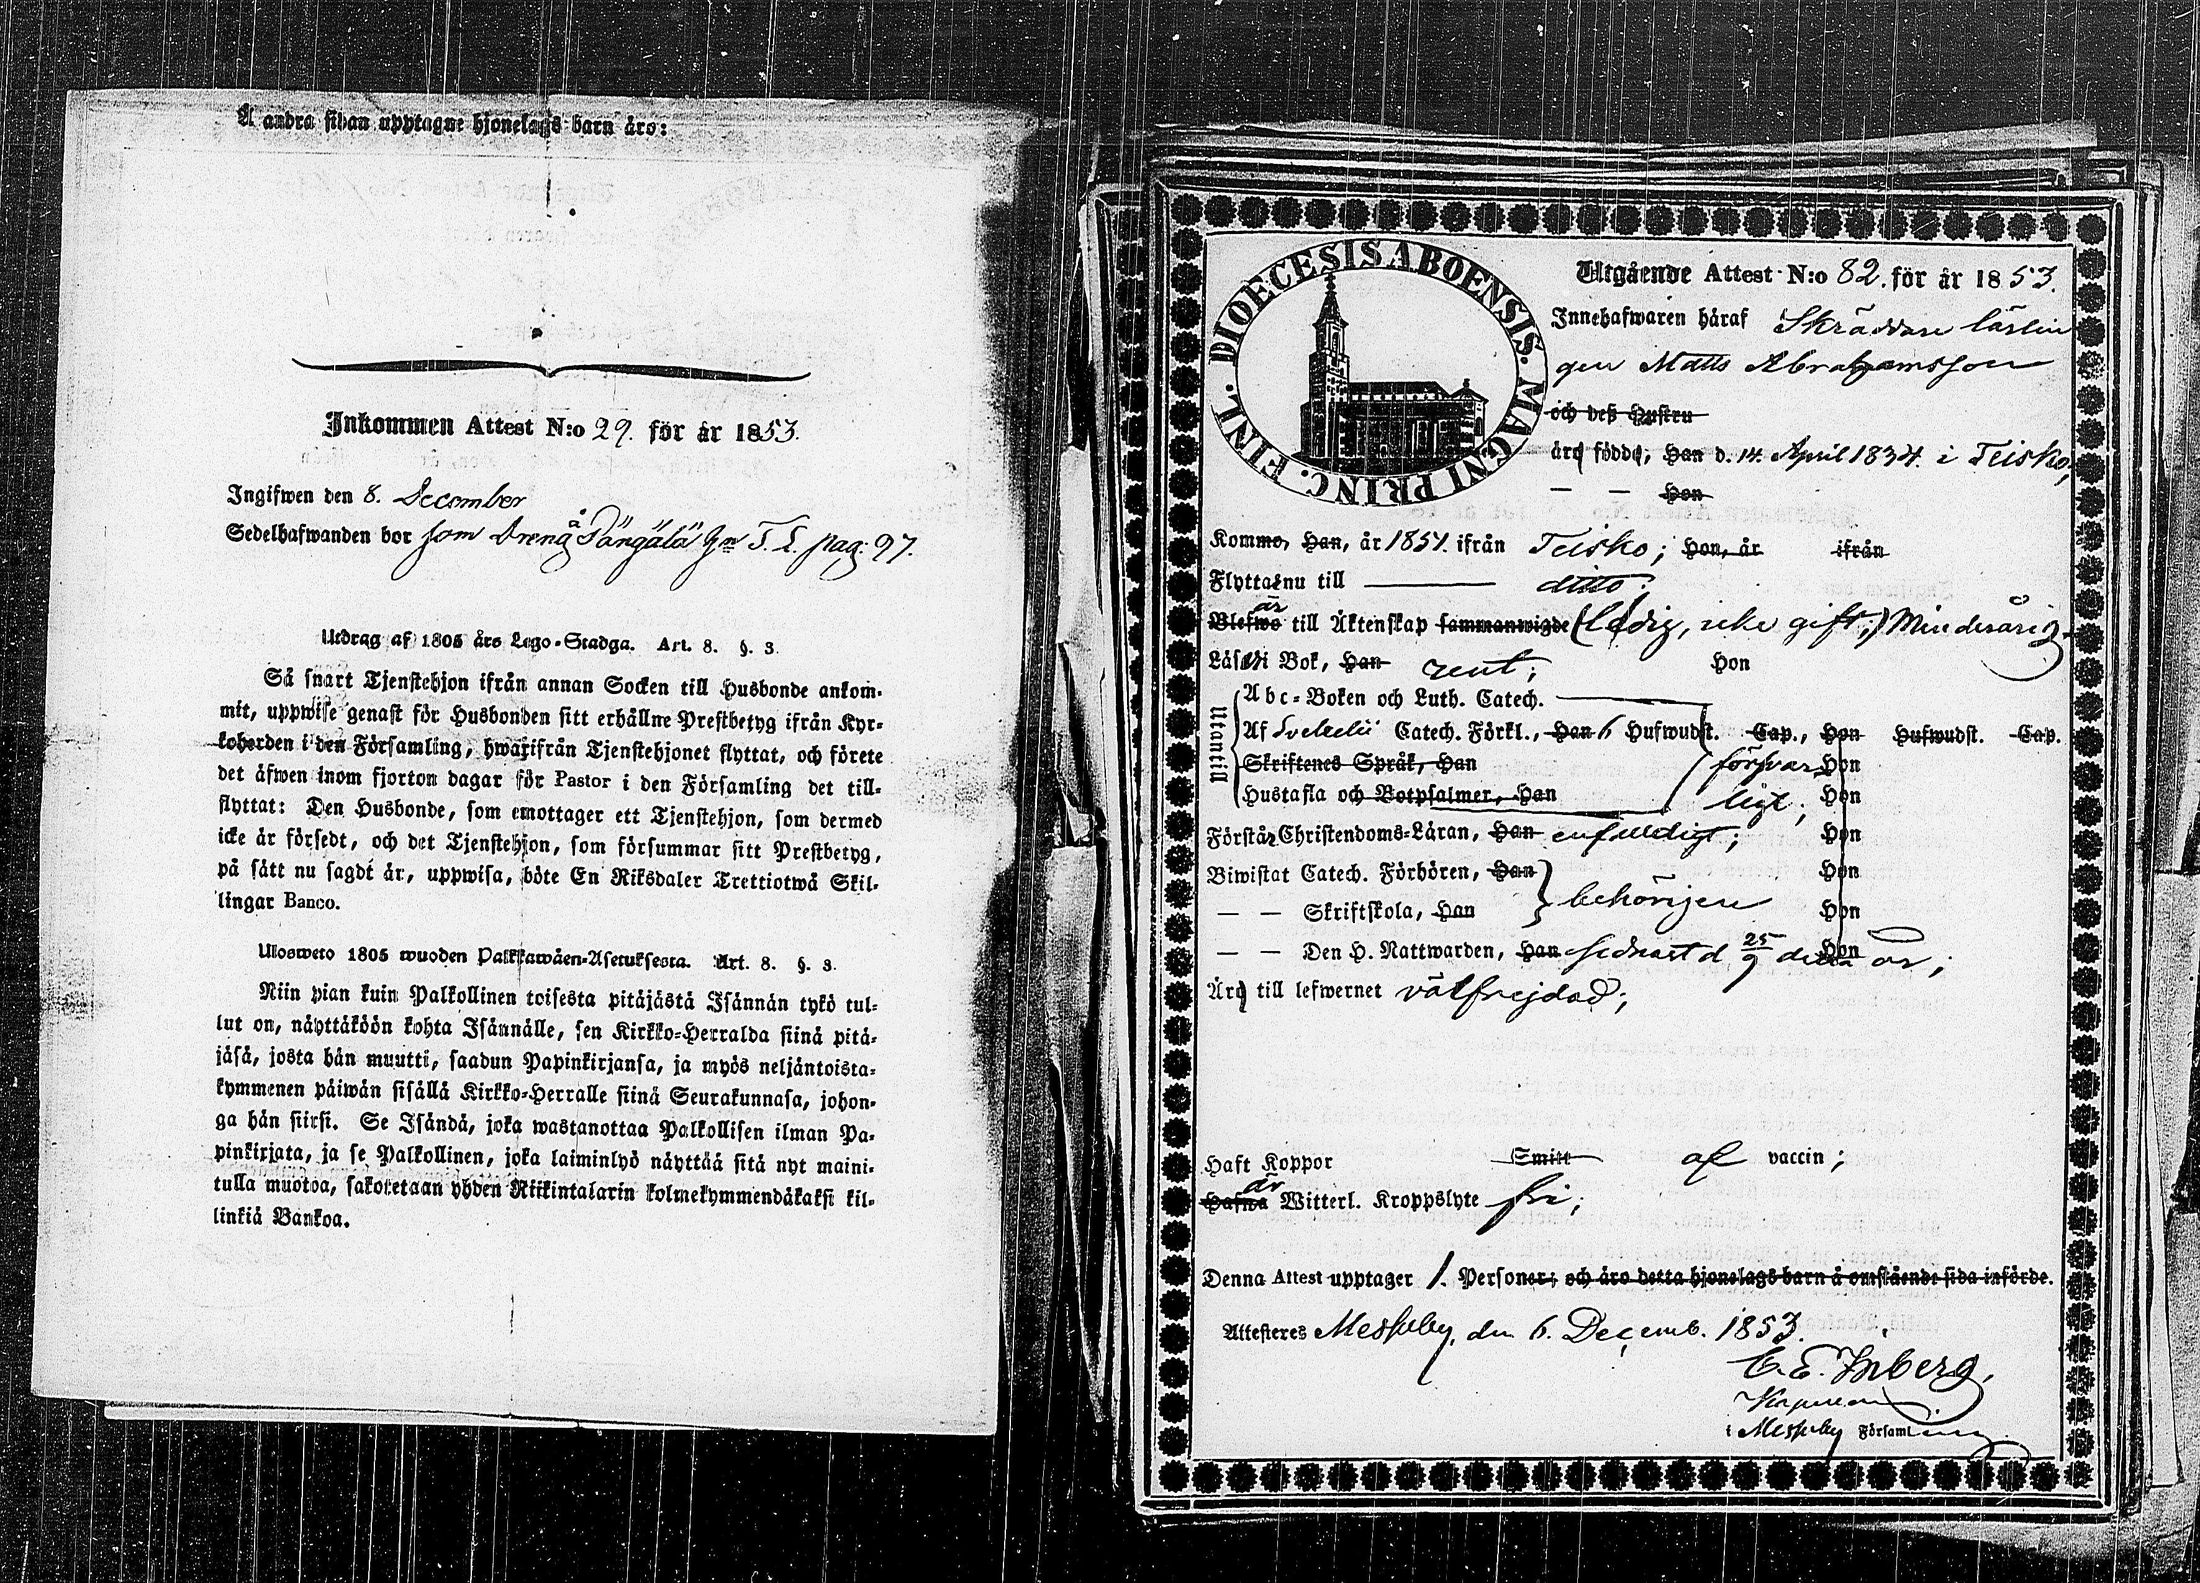 Å andra sidan upptagne hjonelags barn äro:
Inkommen Attest N:o 29. för år 1853.
Ingifwen den 8. December
Sedelhafwanden bor som Dreng å Pängälä Gn T. L. pag: 97.
Utdrag af 1805 års Lego-Stadga. Art. 8. §. 3.
Så snart Tjenstehjon ifrån annan Socken till Husbonde ankom-
mit, uppwise genast för Husbonden sitt erhållne Prestbetyg ifrån Kyr-
koherden i den Församling, hwarifrån Tjenstehjonet flyttat, och förete
det äfwen inom fjorton dagar för Pastor i den Församling det till-
flyttat: Den Husbonde, som emottager ett Tjenstehjon, som dermed
icke är försedt, och det Tjenstehjon, som försummar sitt Prestbetyg,
på sätt nu sagdt är, uppwisa, böte En Riksdaler Trettiotwå Skil-
lingar Banco.
Ulosweto 1805 wuoden Palkkawäen-Asetuksesta. Art. 8. §. 3.
Niin pian kuin Palkollinen toisesta pitäjästä Isännän tykö tul-
lut on, näyttäköön kohta Isännälle, sen Kirkko-Herralda siinä pitä-
jäsä, josta hän muutti, saadun Papinkirjansa, ja myös neljäntoista-
kymmenen päiwän sisällä Kirkko-Herralle siinä Seurakunnasa, johon-
ga hän siirsi. Se Isändä, joka wastanottaa Palkollisen ilman Pa-
pinkirjata, ja se Palkollinen, joka laiminlyö näyttää sitä nyt maini-
tulla muotoa, sakotetaan yhden Riikintalarin kolmekymmendäkaksi kil-
linkiä Bankoa.
DIOECESIS ABOENSIS. MAGNI PRINC. FINL.
Utgående Attest N:o 82. för år 1853.
Innehafwaren häraf Skräddare lärlin
gen Matts Abrahamsson
och deß Hustru
äro födde, Han d. 14. April 1834. i Teisko,
— — Hon
Kommo, Han, år 1851. ifrån Teisko; Hon, år ifrån
Flytta nu till ditto.
Blefwo är till Äktenskap sammanwigde (ledig, icke gift;) Minderårig
Läsa i Bok, Han rent; Hon
Utantill
Abc-Boken och Luth. Catech.
Af Svebelii Catech. Förkl., Han 6 Hufwudst. Cap., Hon Hufwudst. Cap.
Skriftenes Språk, Han försvar Hon
Hustafla och Botpsalmer, Han ligt; Hon
Förstår Christendoms-Läran, Han enfaldigt; Hon
Biwistat Catech. Förhören, Han Hon
— — Skriftskola, Han behörigen Hon
— — Den H. Nattwarden, Han sednast d 25/9 detta Hon år;
Äro till lefwernet välfrejdad;
Haft Koppor Smitt af vaccin;
Hafwa är Witterl. Kroppslyte fri;
Denna Attest upptager 1. Personer; och äro detta hjonelags barn å omstående sida införde.
Attesteras Messuby, den 6. Decemb. 1853.
C. E. Inberg,
Kapellan
i Messuby Församling